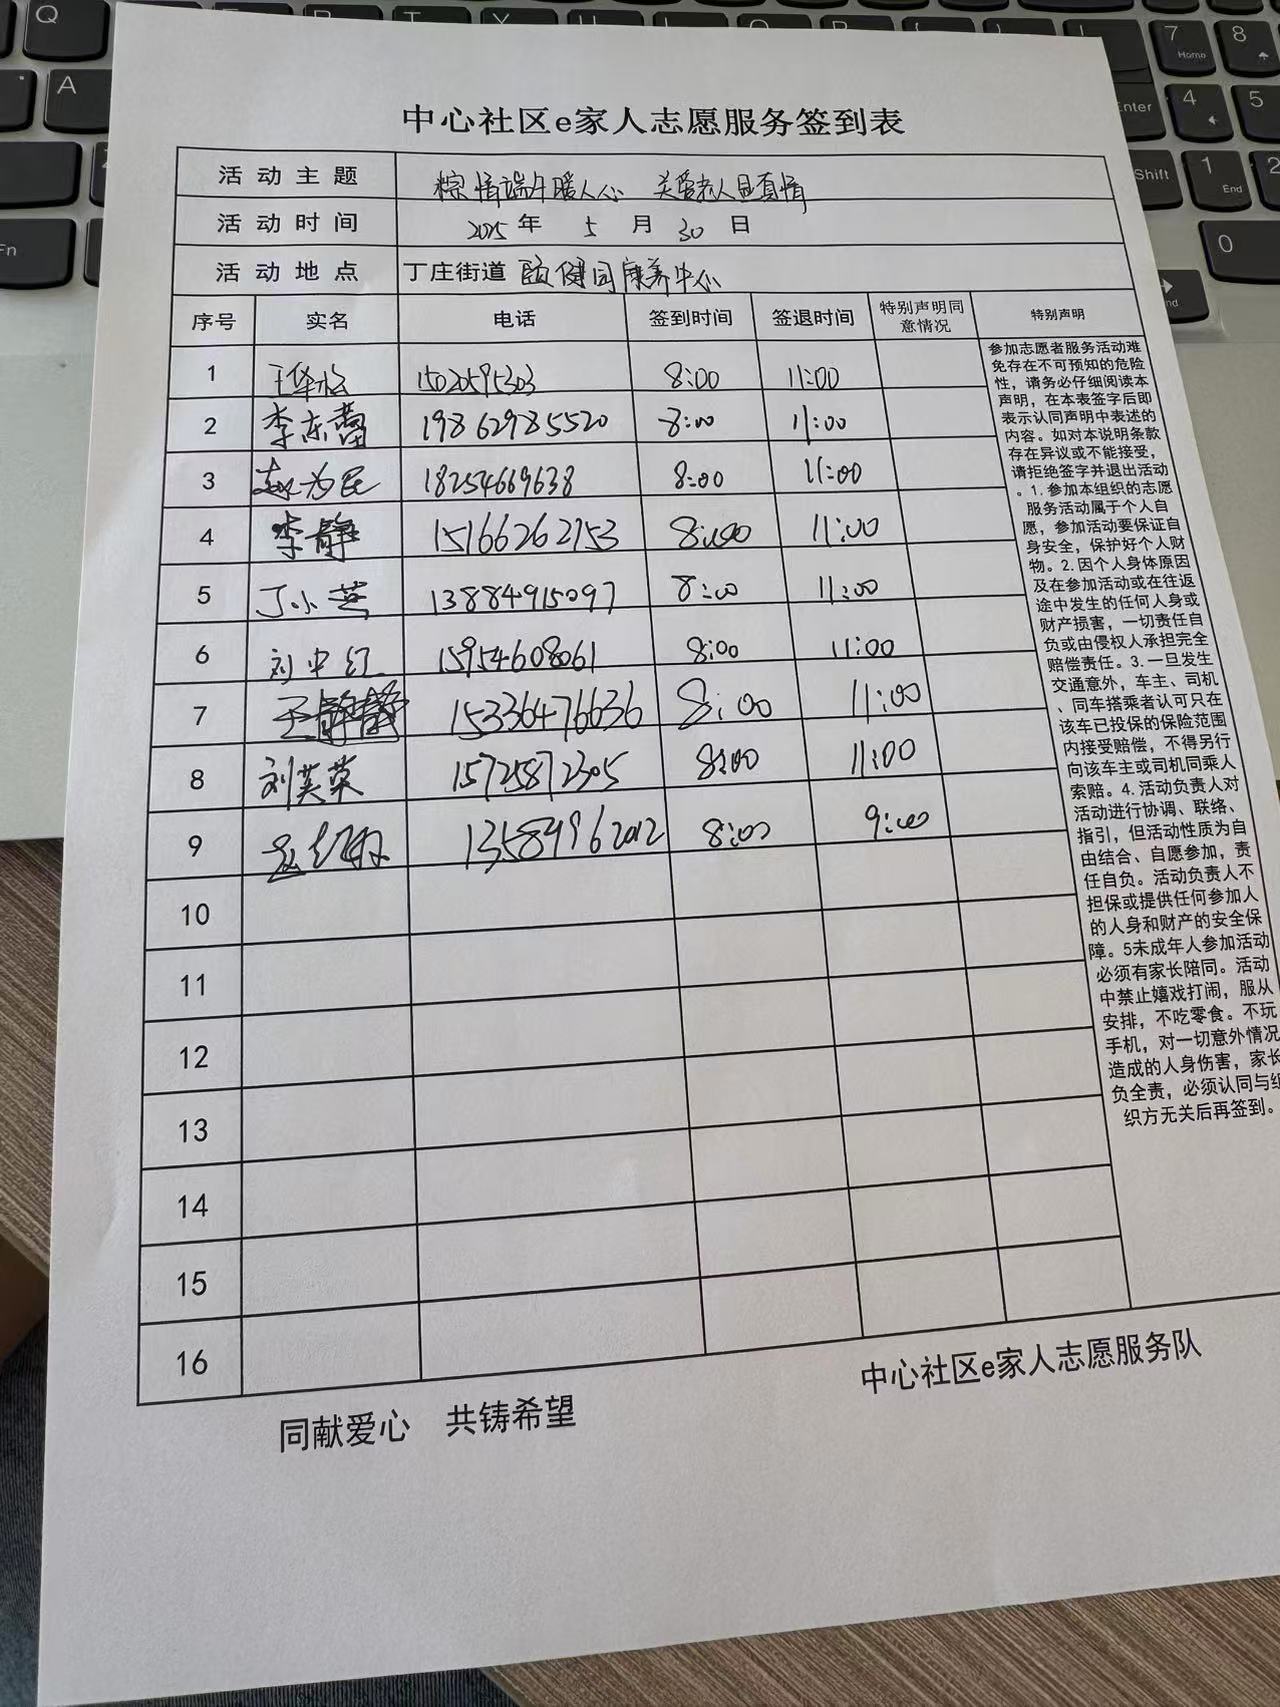 中心社区e家人志愿服务签到表
活动主题 粽情端午暖人心 关爱老人显真情
活动时间 2025年 5月 30日
活动地点 丁庄街道 颐健园康养中心
序号 实名 电话 签到时间 签退时间 特别声明同意情况 特别声明
1 15020595303 8:00 11:00
2 李东蕾 19862985520 8:00 11:00
3 赵为民 18254669638 8:00 11:00
4 李静 15166262153 8:00 11:00
5 丁小燕 13884915097 8:00 11:00
6 刘中红 15954608061 8:00 11:00
7 王静静 15336476636 8:00 11:00
8 刘芙荣 15725872305 8:00 11:00
9 13589962012 8:00 9:00
10
11
12
13
14
15
16
参加志愿者服务活动难
免存在不可预知的危险
性,请务必仔细阅读本
声明,在本表签字后即
表示认同声明中表述的
内容。如对本说明条款
存在异议或不能接受,
请拒绝签字并退出活动
。1.参加本组织的志愿
服务活动属于个人自
愿,参加活动要保证自
身安全,保护好个人财
物。2.因个人身体原因
及在参加活动或在往返
途中发生的任何人身或
财产损害,一切责任自
负或由侵权人承担完全
赔偿责任。3.一旦发生
交通意外,车主、司机
、同车搭乘者认可只在
该车已投保的保险范围
内接受赔偿,不得另行
向该车主或司机同乘人
索赔。4.活动负责人对
活动进行协调、联络、
指引,但活动性质为自
由结合、自愿参加,责
任自负。活动负责人不
担保或提供任何参加人
的人身和财产的安全保
障。5未成年人参加活动
必须有家长陪同。活动
中禁止嬉戏打闹,服从
安排,不吃零食。不玩
手机,对一切意外情况
造成的人身伤害,家长
负全责,必须认同与组
织方无关后再签到。
中心社区e家人志愿服务队
同献爱心 共铸希望